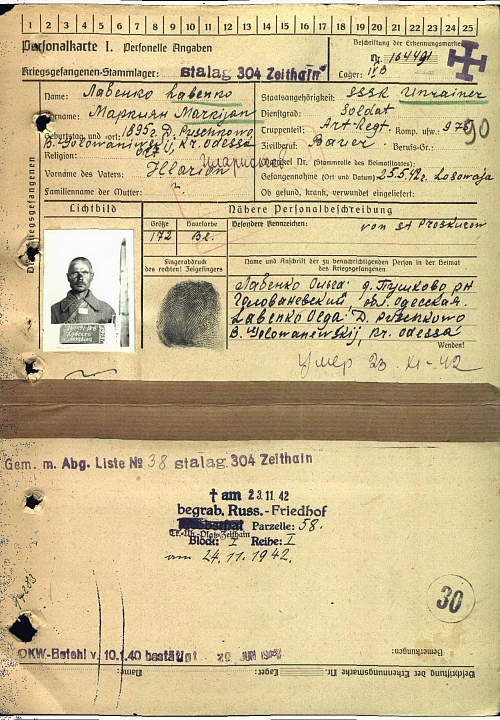 1 2 3 4 5 6 7 8 9 10 11 12 13 14 15 16 17 18 19 20 21 22 23 24 25
Personalkarte I. Personelle Angaben
Beschriftung der Erkennungsmarke
Nr. 164491
Kriegsgefangenen-Stammlager: stalag 304 Zeithain
Lager: IVB
Name: Лавенко Labenko
Staatsangehörigkeit: SSSR Ukrainer
Vorname: Маркиян Markijan
Dienstgrad: Soldat
Geburtstag und -ort: 1895 D. Puschkowo
Truppenteil: Art Regt. Komp. usw.: 978
90
B. Golowaniwskij, Kr. Odessa
Zivilberuf: Bauer Berufs-Gr.:
Religion:
Matrikel Nr. (Stammrolle des Heimatstaates):
Vorname des Vaters: Illarion
Gefangennahme (Ort und Datum) 25.5.42. Losowaja
Familienname der Mutter:
Ob gesund, krank, verwundet eingeliefert:
Lichtbild
Nähere Personalbeschreibung
Größe
Haarfarbe
Besondere Kennzeichen:
von St Proskurow
172
Bl.
Fingerabdruck
des rechten! Zeigefingers
Name und Anschrift der zu benachrichtigenden Person in der Heimat
des Kriegsgefangenen
Лавенко Ольга д. Пушково рн
Головановский обл. Одесская.
Labenko Olga D. Puschkowo
B. Golowanewskij, Kr. Odessa
Wenden!
Умер 23. XI - 42
Gem. m. Abg. Liste № 38 stalag 304 Zeithain
† am 23.11.42
begrab. Russ.-Friedhof
Parzelle: 58.
Tr.-Üb.-Platz Zeithain
Block: I Reihe: I
am 24.11.1942.
30
OKW-Befehl v. 10.1.40 bestätigt
Bemerkungen:
Beschriftung der Erkennungsmarke Nr.
Lager:
Name: